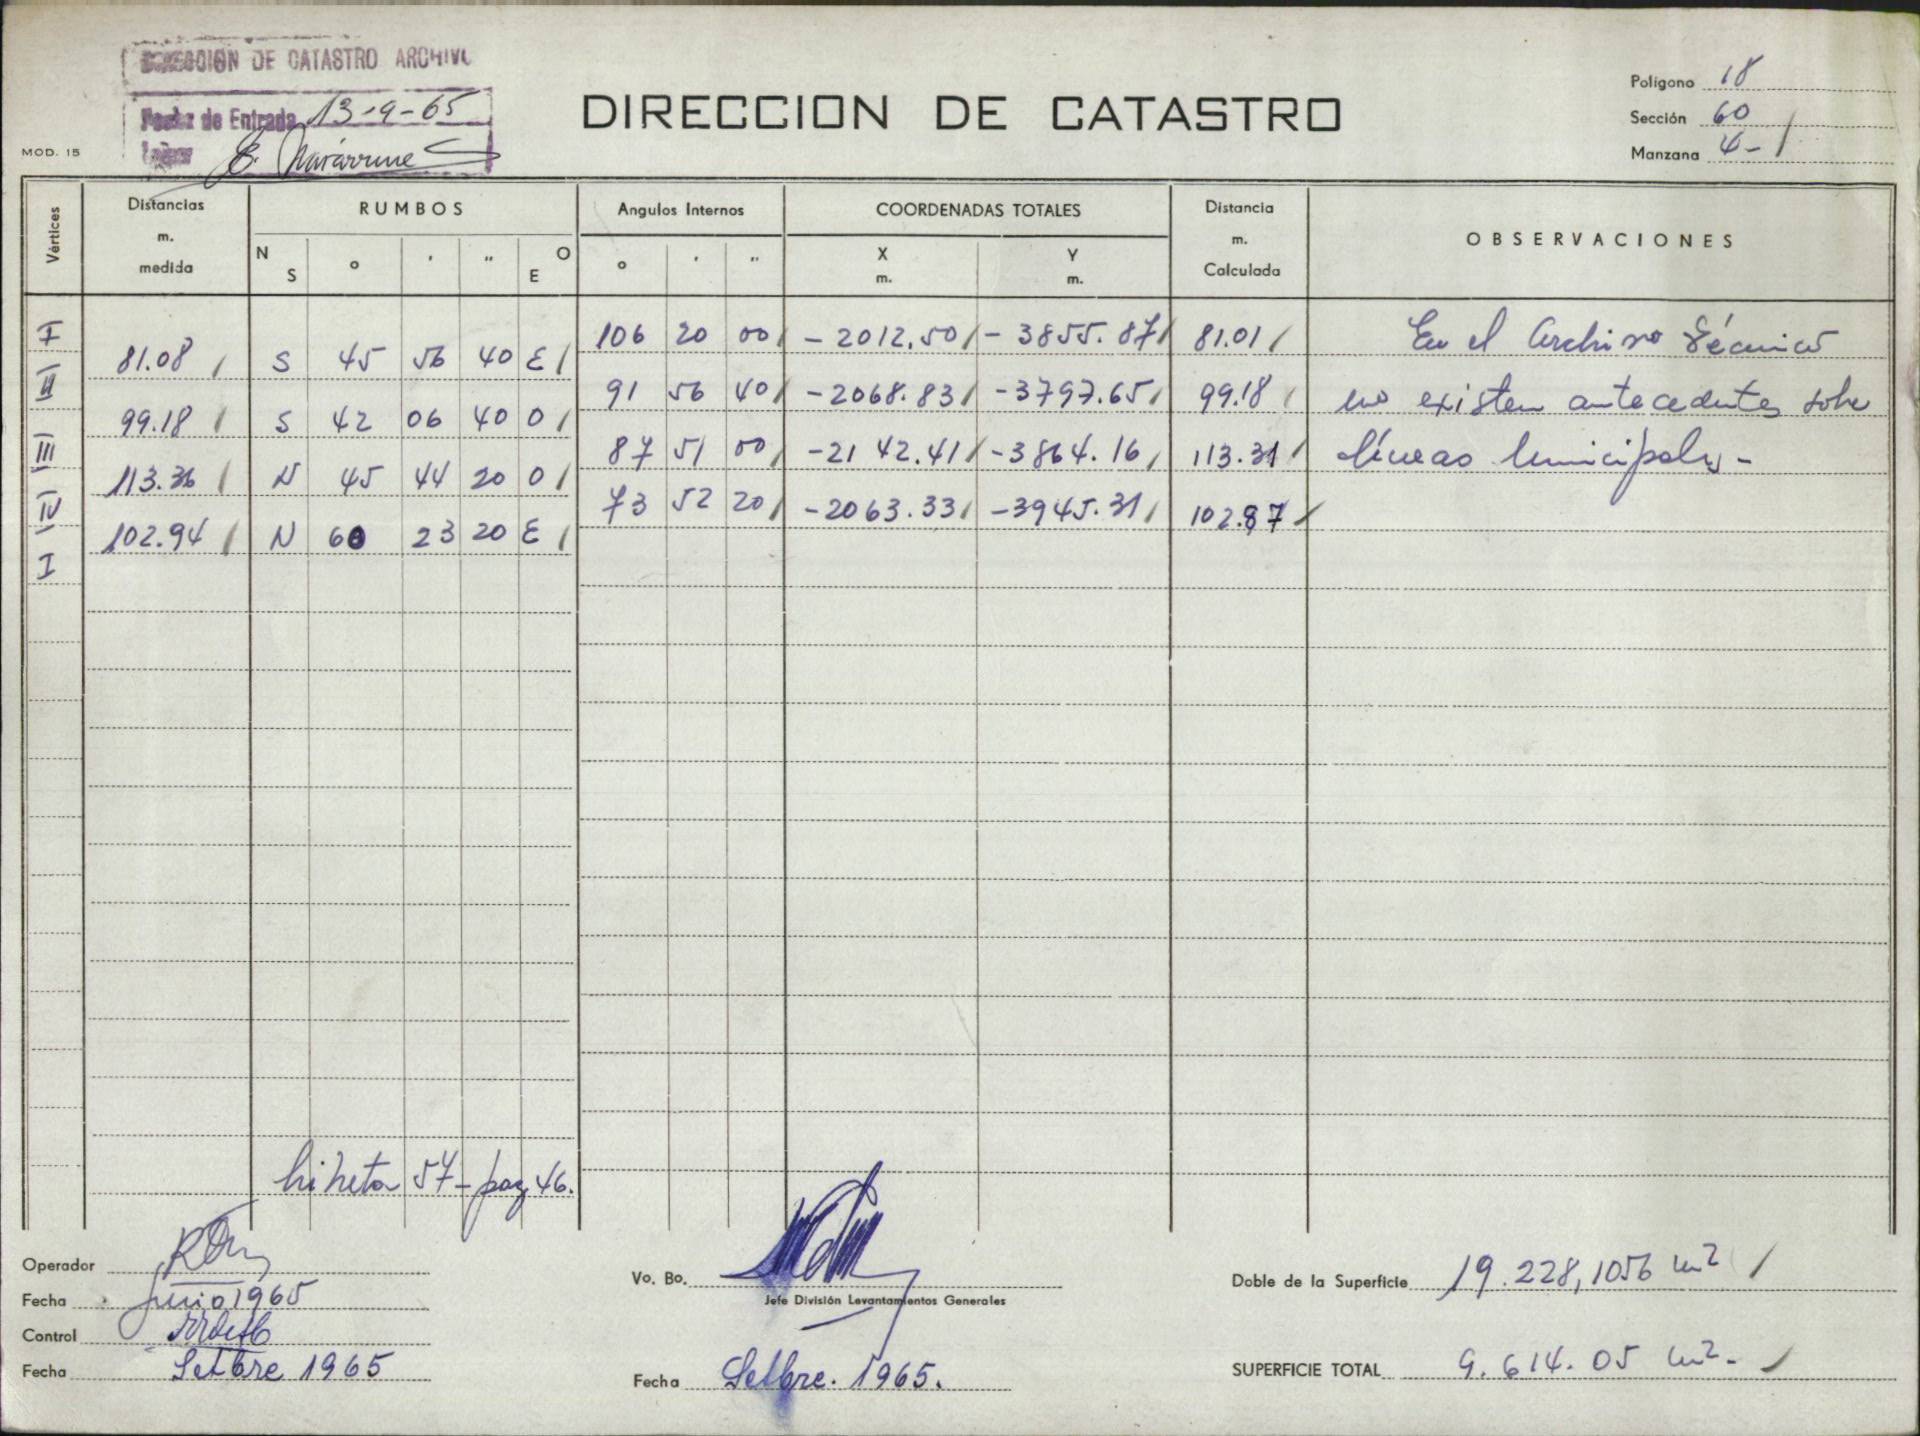 DIRECCION DE CATASTRO ARCHIVO
Fecha de Entrada 13-9-65
MOD. 15
DIRECCION DE CATASTRO
Polígono 18
Sección 60
Manzana 4-
Vértices
Distancias m. medida
RUMBOS
N S ° ' " E O
Angulos Internos
° ' "
COORDENADAS TOTALES
X m. Y m.
Distancia m. Calculada
OBSERVACIONES
I 106 20 00 -2012.50 -3855.87 81.01 En el Archivo Técnico
81.08 S 45 56 40 E
II 91 56 40 -2068.83 -3797.65 99.18 no existen antecedentes sobre
99.18 S 42 06 40 O
III 87 51 00 -2142.41 -3864.16 113.31 líneas Municipales -
113.36 N 45 44 20 O
IV 73 52 20 -2063.33 -3945.31 102.87
102.94 N 60 23 20 E
I
libreta 57 - pag 46.
Operador
Fecha Junio 1965
Control
Fecha Setbre 1965
Vo. Bo.
Jefe División Levantamientos Generales
Fecha Setbre. 1965.
Doble de la Superficie 19.228,1056 m2
SUPERFICIE TOTAL 9.614.05 m2-